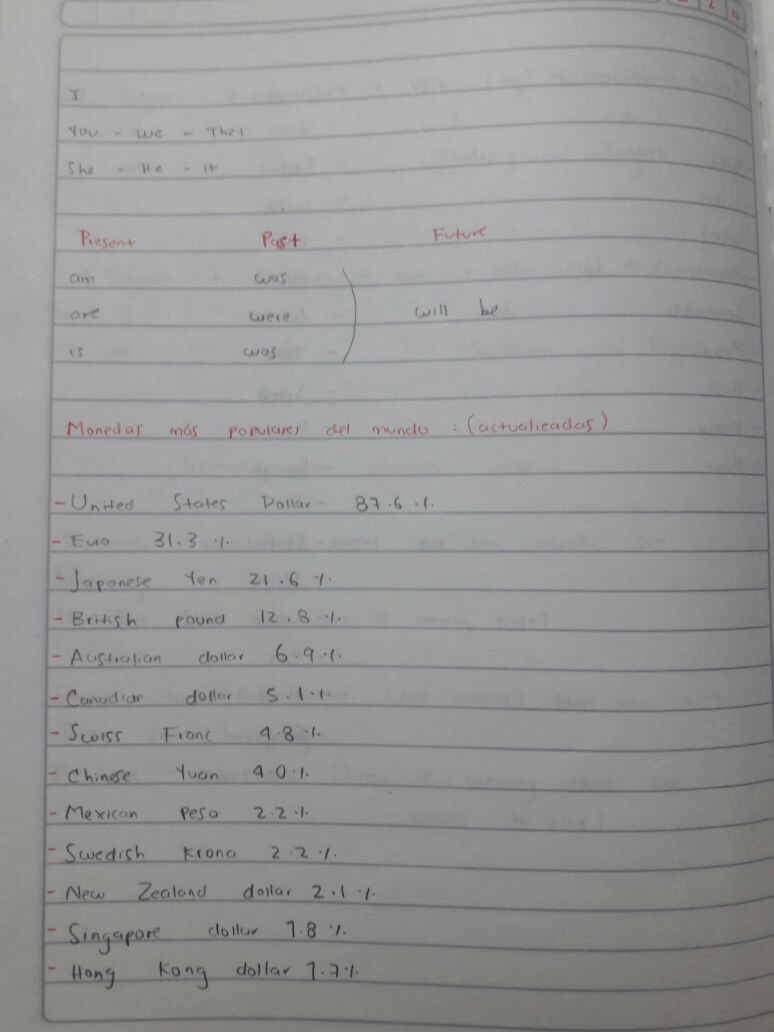 I
You - We - They
She - He - it
Present Past Future
am was
are were will be
is was
Monedas más populares del mundo : (actualizadas)
- United States Dollar - 87.6 %
- Euro 31.3 %
- Japonese Yen 21.6 %
- British pound 12.8 %
- Australian dollar 6.9 %
- Canadian dollar 5.1 %
- Swiss Franc 4.8 %
- Chinese Yuan 4.0 %
- Mexican Peso 2.2 %
- Swedish Krona 2.2 %
- New Zealand dollar 2.1 %
- Singapore dollar 1.8 %
- Hong Kong dollar 1.7 %